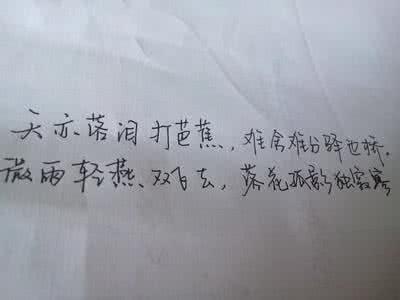 天亦落泪打芭蕉，难舍难分驿也桥.
微雨轻燕、双飞去，落花孤影独寂寥